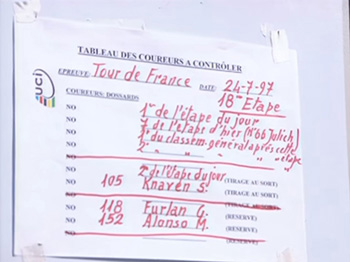 TABLEAU DES COUREURS A CONTRÔLER
uci
EPREUVE: Tour de France DATE: 24-7-97
18me Etape
COUREURS: DOSSARDS
NO 1er de l'étape du jour
NO 7 de l'étape d'hier (N°66 Julich)
NO 1er du classem. général après cette étape
NO 2e " " " "
NO 2e de l'étape du jour (TIRAGE AU SORT)
NO 105 Knaven S. (TIRAGE AU SORT)
NO (TIRAGE AU SORT)
NO 118 Furlan G. (RESERVE)
NO 152 Alonso M. (RESERVE)
NO (RESERVE)